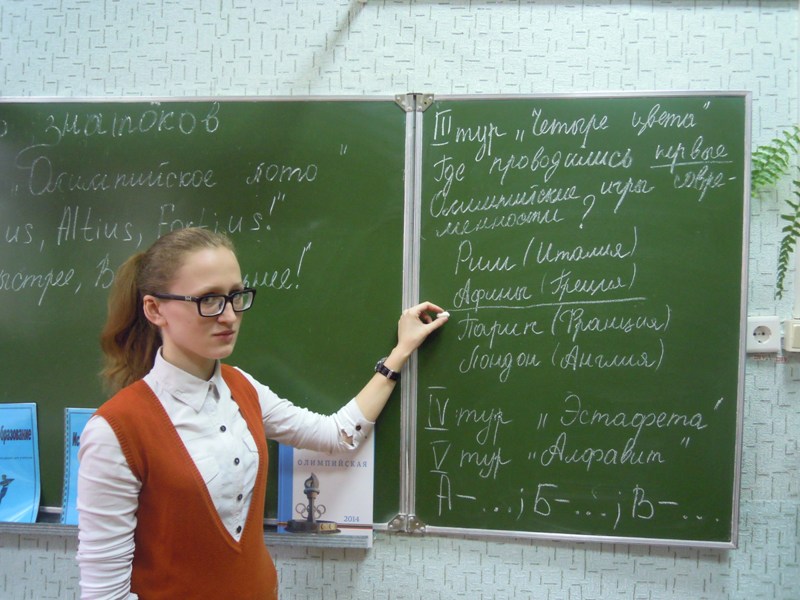 знатоков
„Олимпийское лото"
us, Altius, Fortius!"
ыстрее, В нее!"
III тур „Четыре цвета"
Где проводились первые
Олимпийские игры совре-
менности?
Рим (Италия)
Афины (Греция)
Париж (Франция)
Лондон (Англия)
IV тур „Эстафета"
V тур „Алфавит"
А – ...; Б – ...; В – ...
образование
ОЛИМПИЙСКАЯ
2014